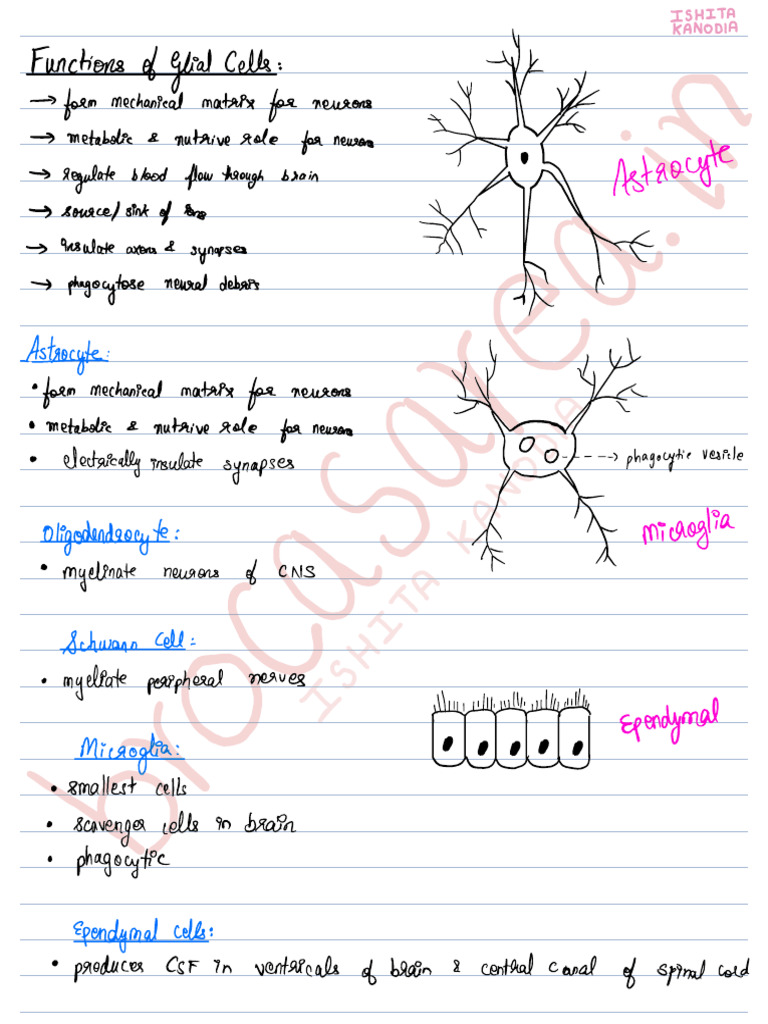 ISHITA
KANODIA
Functions of Glial Cells:
→ form mechanical matrix for neurons
→ metabolic & nutrive role for neurons
→ regulate blood flow through brain
→ source/sink of ions
→ insulate axons & synapses
→ phagocytose neural debris
Astrocyte
Astrocyte:
• form mechanical matrix for neurons
• metabolic & nutrive role for neurons
• electrically insulate synapses
phagocytic vesicle
Microglia
Oligodendrocyte:
• myelinate neurons of CNS
Schwann Cell:
• myeliate peripheral nerves
Ependymal
Microglia:
• smallest cells
• scavenger cells in brain
• phagocytic
Ependymal cells:
• produces CSF in ventricals of brain & central canal of spinal cord
brocasarea.in
ISHITA KANODIA